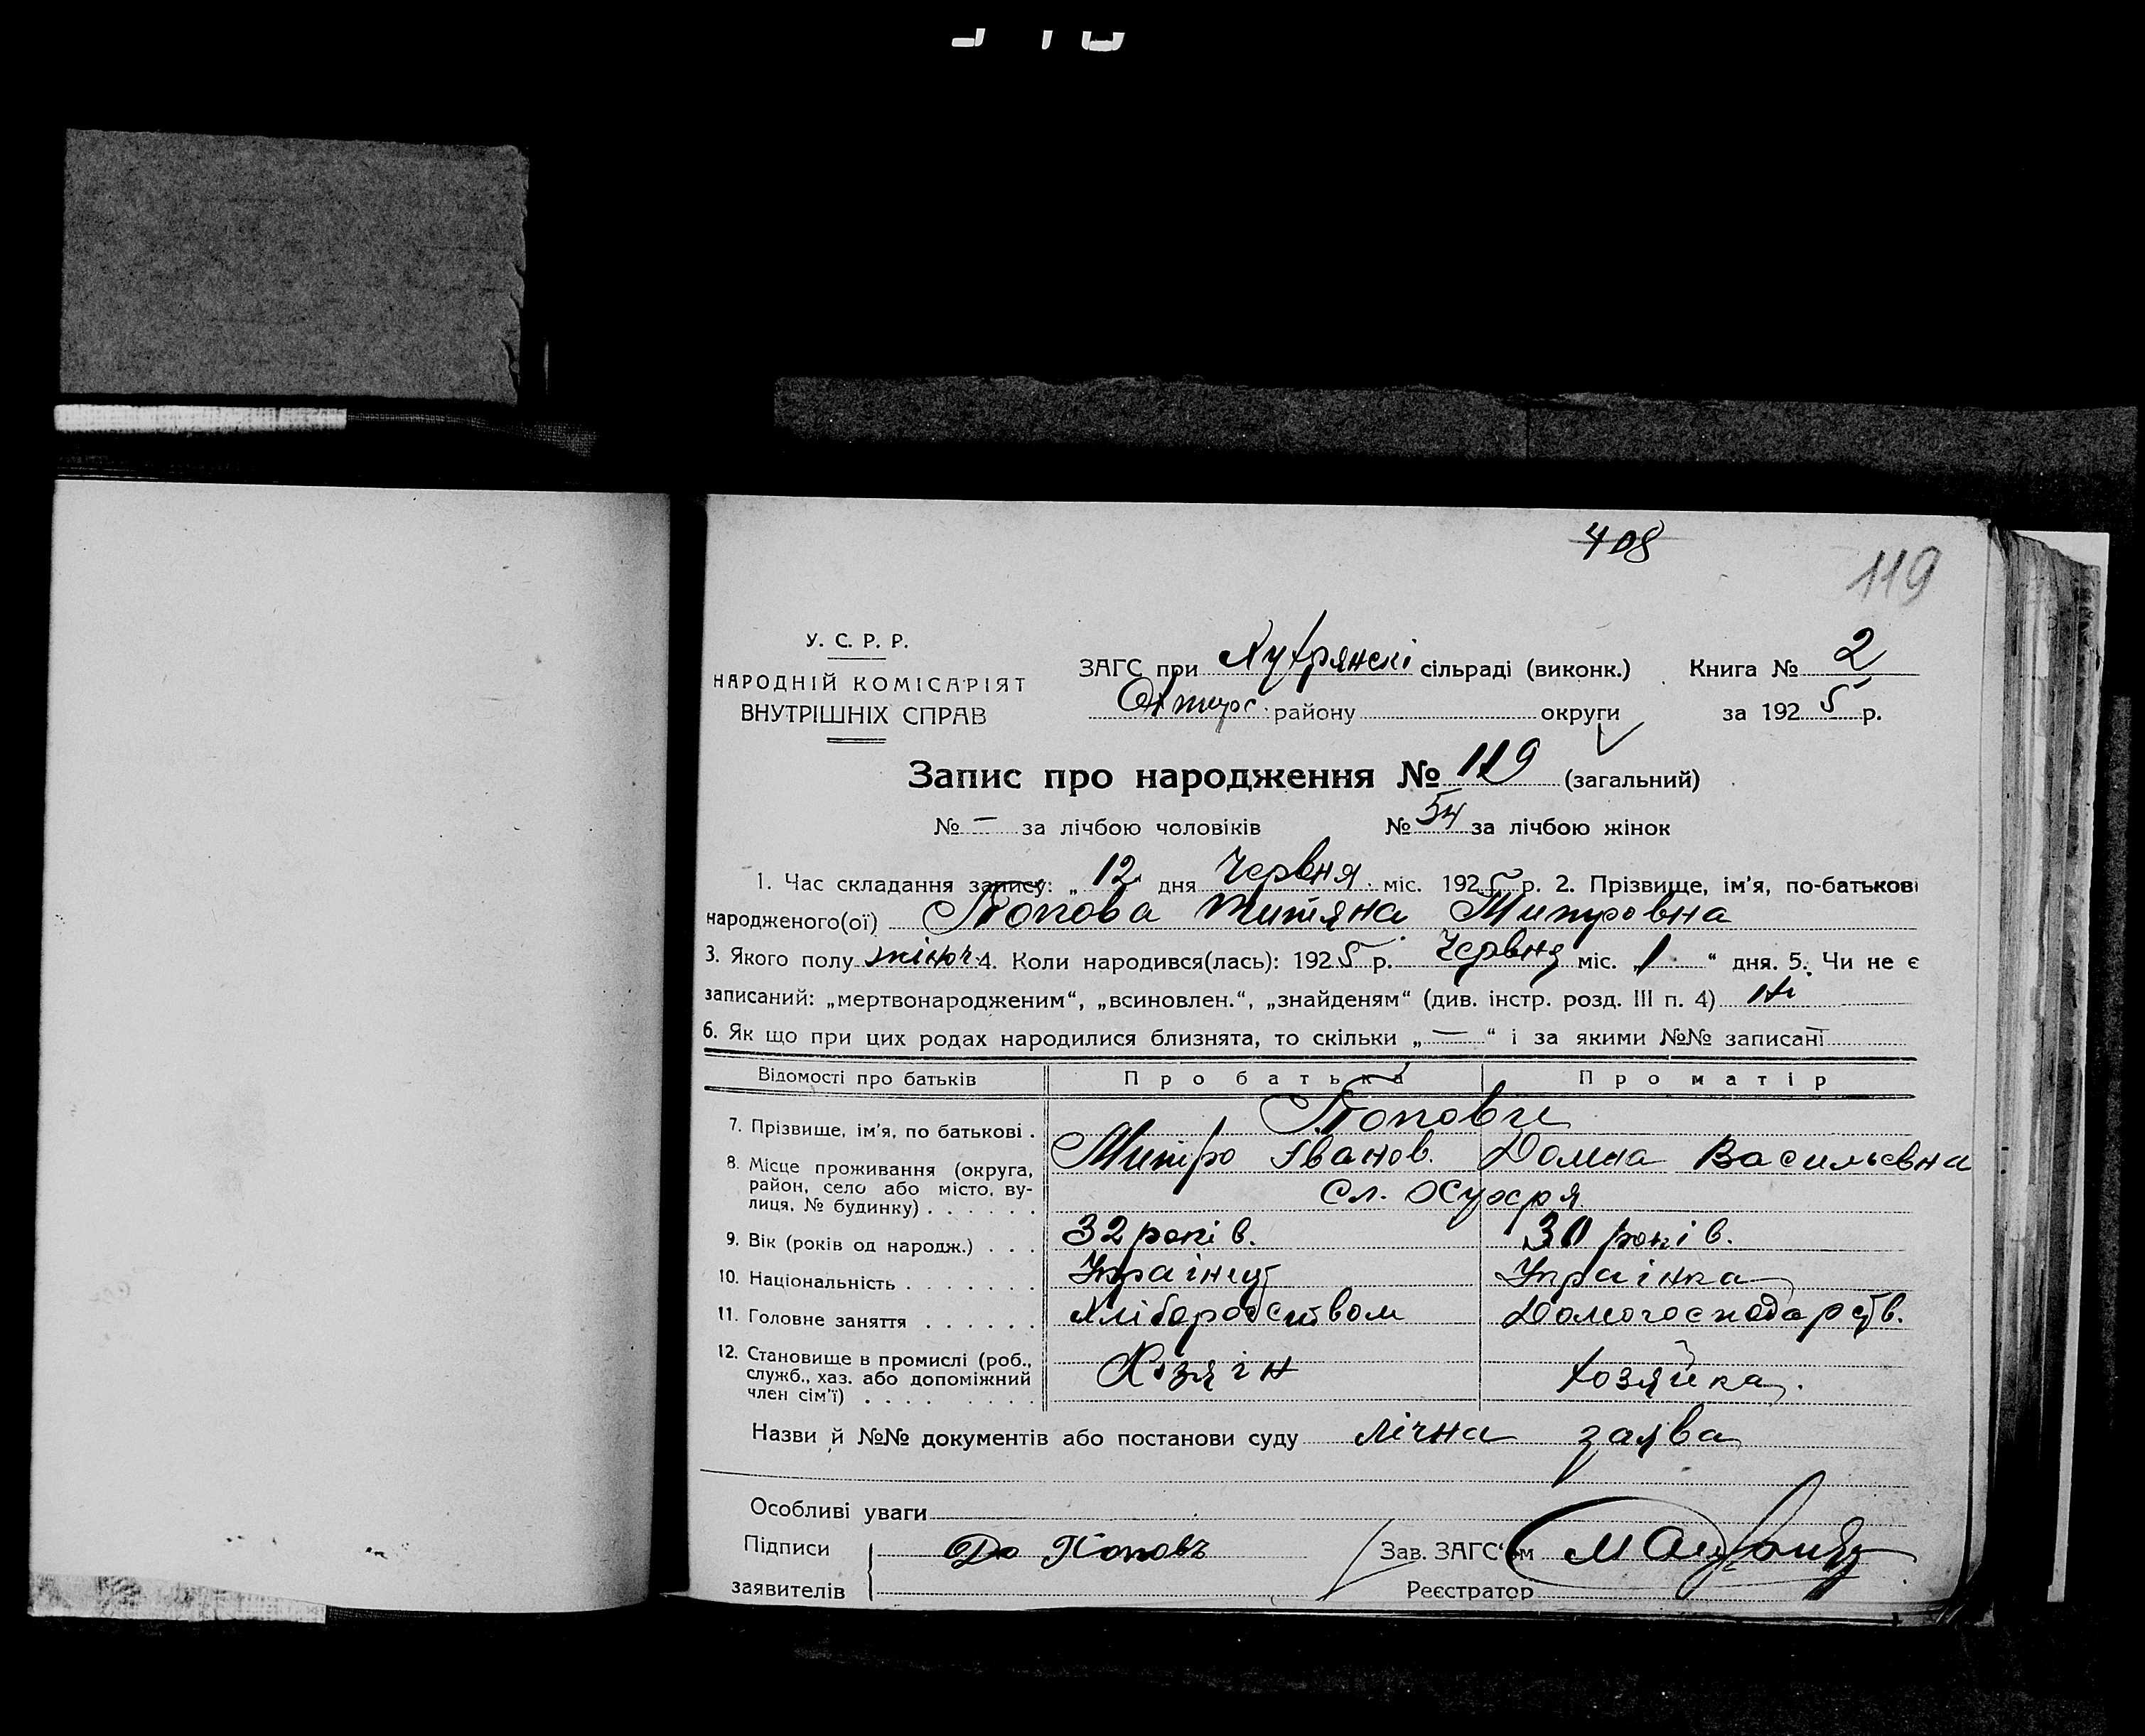 408
119
У. С. Р. Р.
НАРОДНІЙ КОМІСАРІЯТ
ВНУТРІШНІХ СПРАВ
ЗАГС при Хухрянскі сільраді (виконк.) Книга № 2
Охтирс. району округи за 1925 р.
Запис про народження № 119 (загальний)
№ — за лічбою чоловіків № 54 за лічбою жінок
1. Час складання запису: „12“ дня Червня міс. 1925 р. 2. Прізвище, ім'я, по-батькові
народженого(ої) Попова Титяна Митровна
3. Якого полу жіноч. 4. Коли народився(лась): 1925 р. Червня міс. „1“ дня. 5. Чи не є
записаний: „мертвонародженим“, „всиновлен.“, „знайденям“ (див. інстр. розд. III п. 4) Ні
6. Як що при цих родах народилися близнята, то скільки „—“ і за якими №№ записані —
Відомості про батьків Про батька Про матір
7. Прізвище, ім'я, по батькові . Попови
Митро Іванов. Домна Васильєвна
8. Місце проживання (округа,
район, село або місто, ву-
лиця, № будинку) . . . . . . Сл. Хухря
9. Вік (років од народж.) . . . 32 років. 30 років.
10. Національність . . . . . . . Украінец Украінка
11. Головне заняття . . . . . . Хліборобством Домогосподарств.
12. Становище в промислі (роб.,
служб., хаз. або допоміжний
член сім'ї) . . . . . . . . Хозяін Хозяйка.
Назви й №№ документів або постанови суду лічна заява
Особливі уваги
Підписи До Поповъ Зав. ЗАГС'ом
заявителів Реєстратор